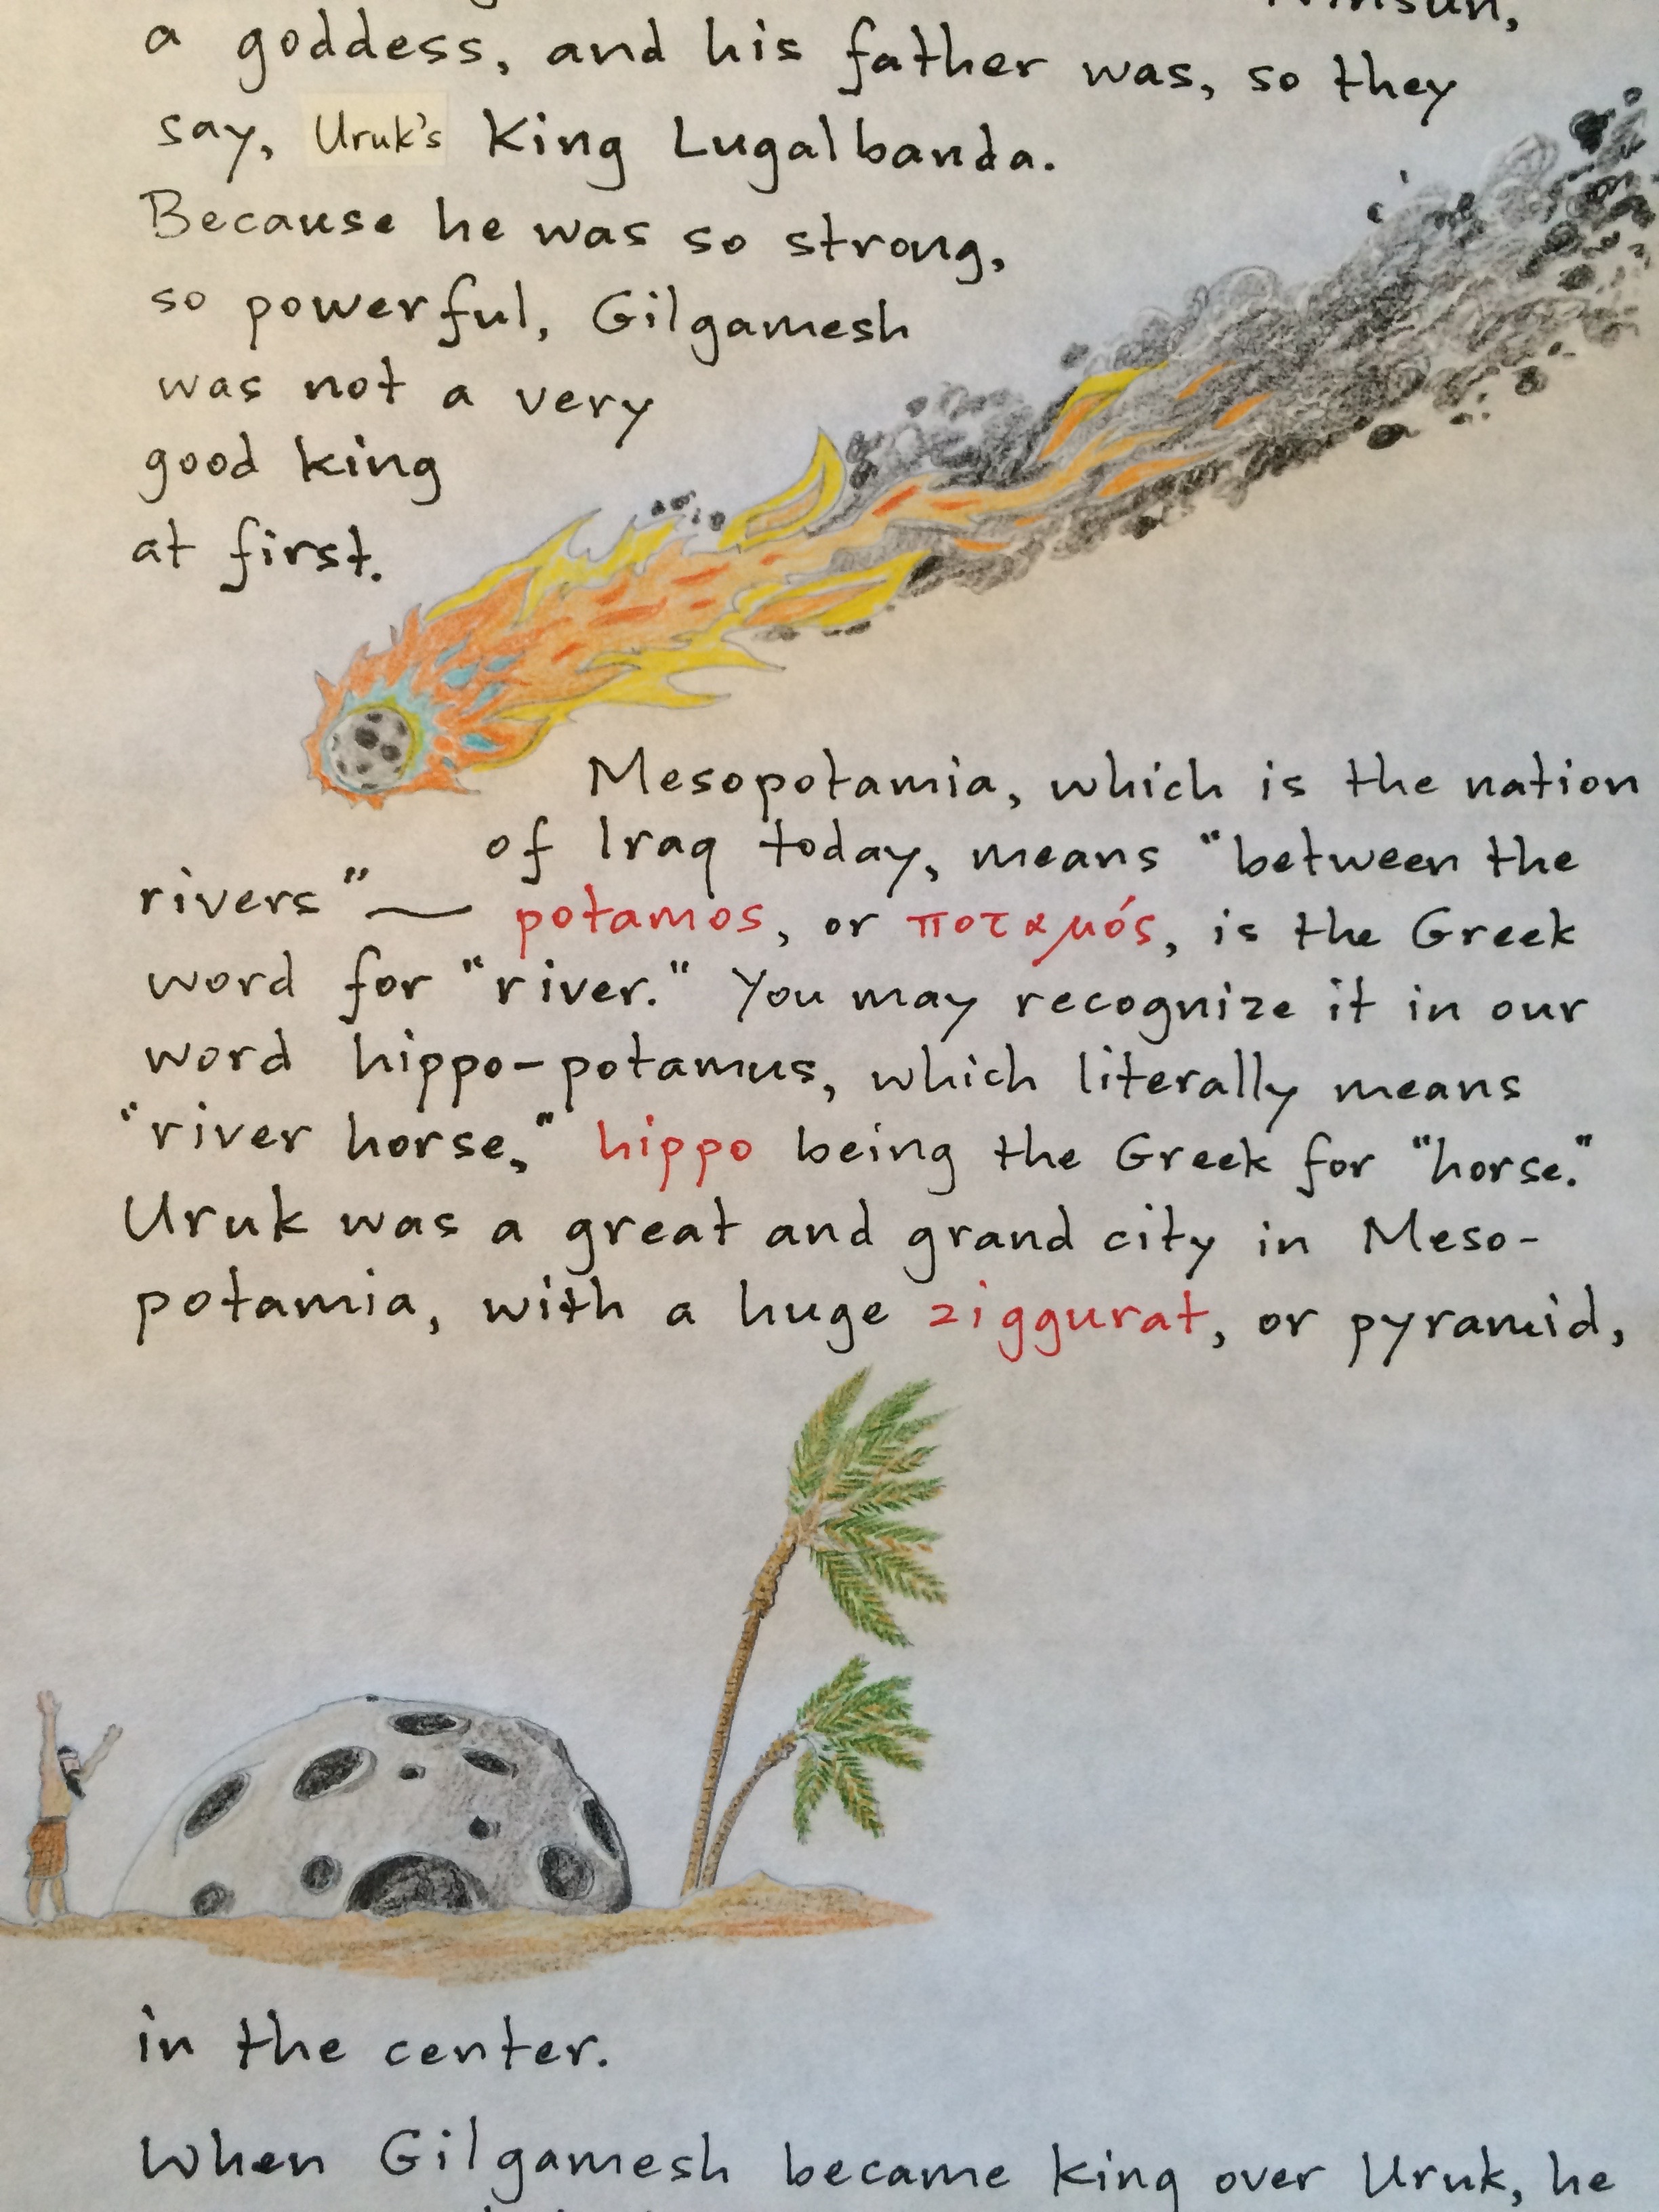 Ninsun,
a goddess, and his father was, so they
say, Uruk's King Lugalbanda.
Because he was so strong,
so powerful, Gilgamesh
was not a very
good king
at first.
Mesopotamia, which is the nation
of Iraq today, means "between the
rivers" — potamos, or ποταμός, is the Greek
word for "river." You may recognize it in our
word hippo-potamus, which literally means
"river horse," hippo being the Greek for "horse."
Uruk was a great and grand city in Meso-
potamia, with a huge ziggurat, or pyramid,
in the center.
When Gilgamesh became King over Uruk, he